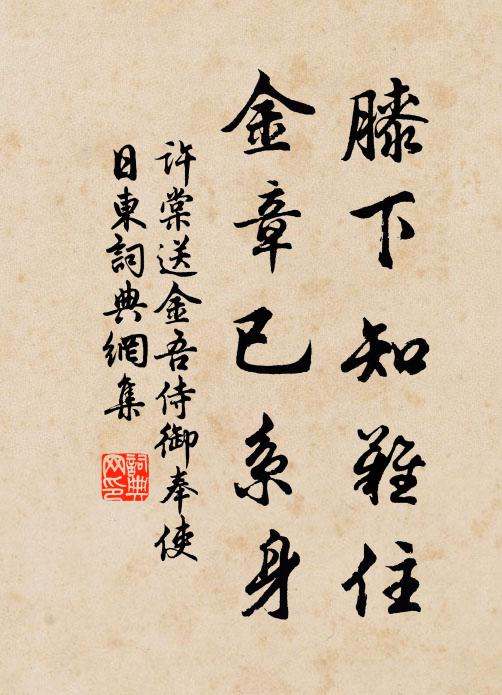 膝下知難住
金章已系身
許棠送金吾侍御奉使
日東詞典網集
詞典
网印